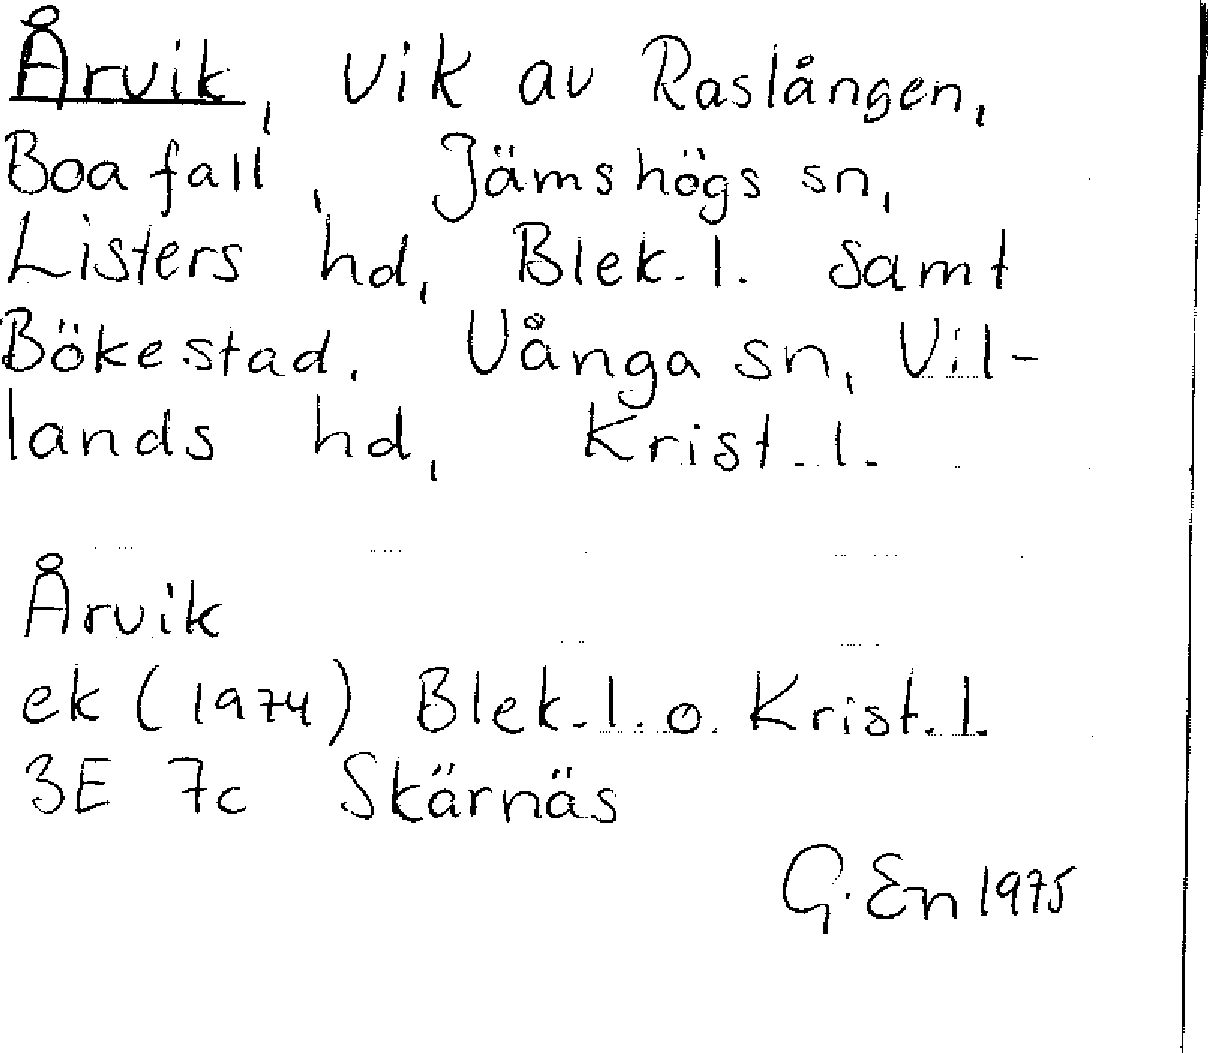 Årvik, vik av Raslången,
Boafall, Jämshögs sn,
Listers hd, Blek. l. samt
Bökestad. Vånga sn, Vil-
lands hd, Krist. l.
Årvik
ek (1974) Blek. l. o. Krist. l.
3E 7c Skärnäs
G. En 1975